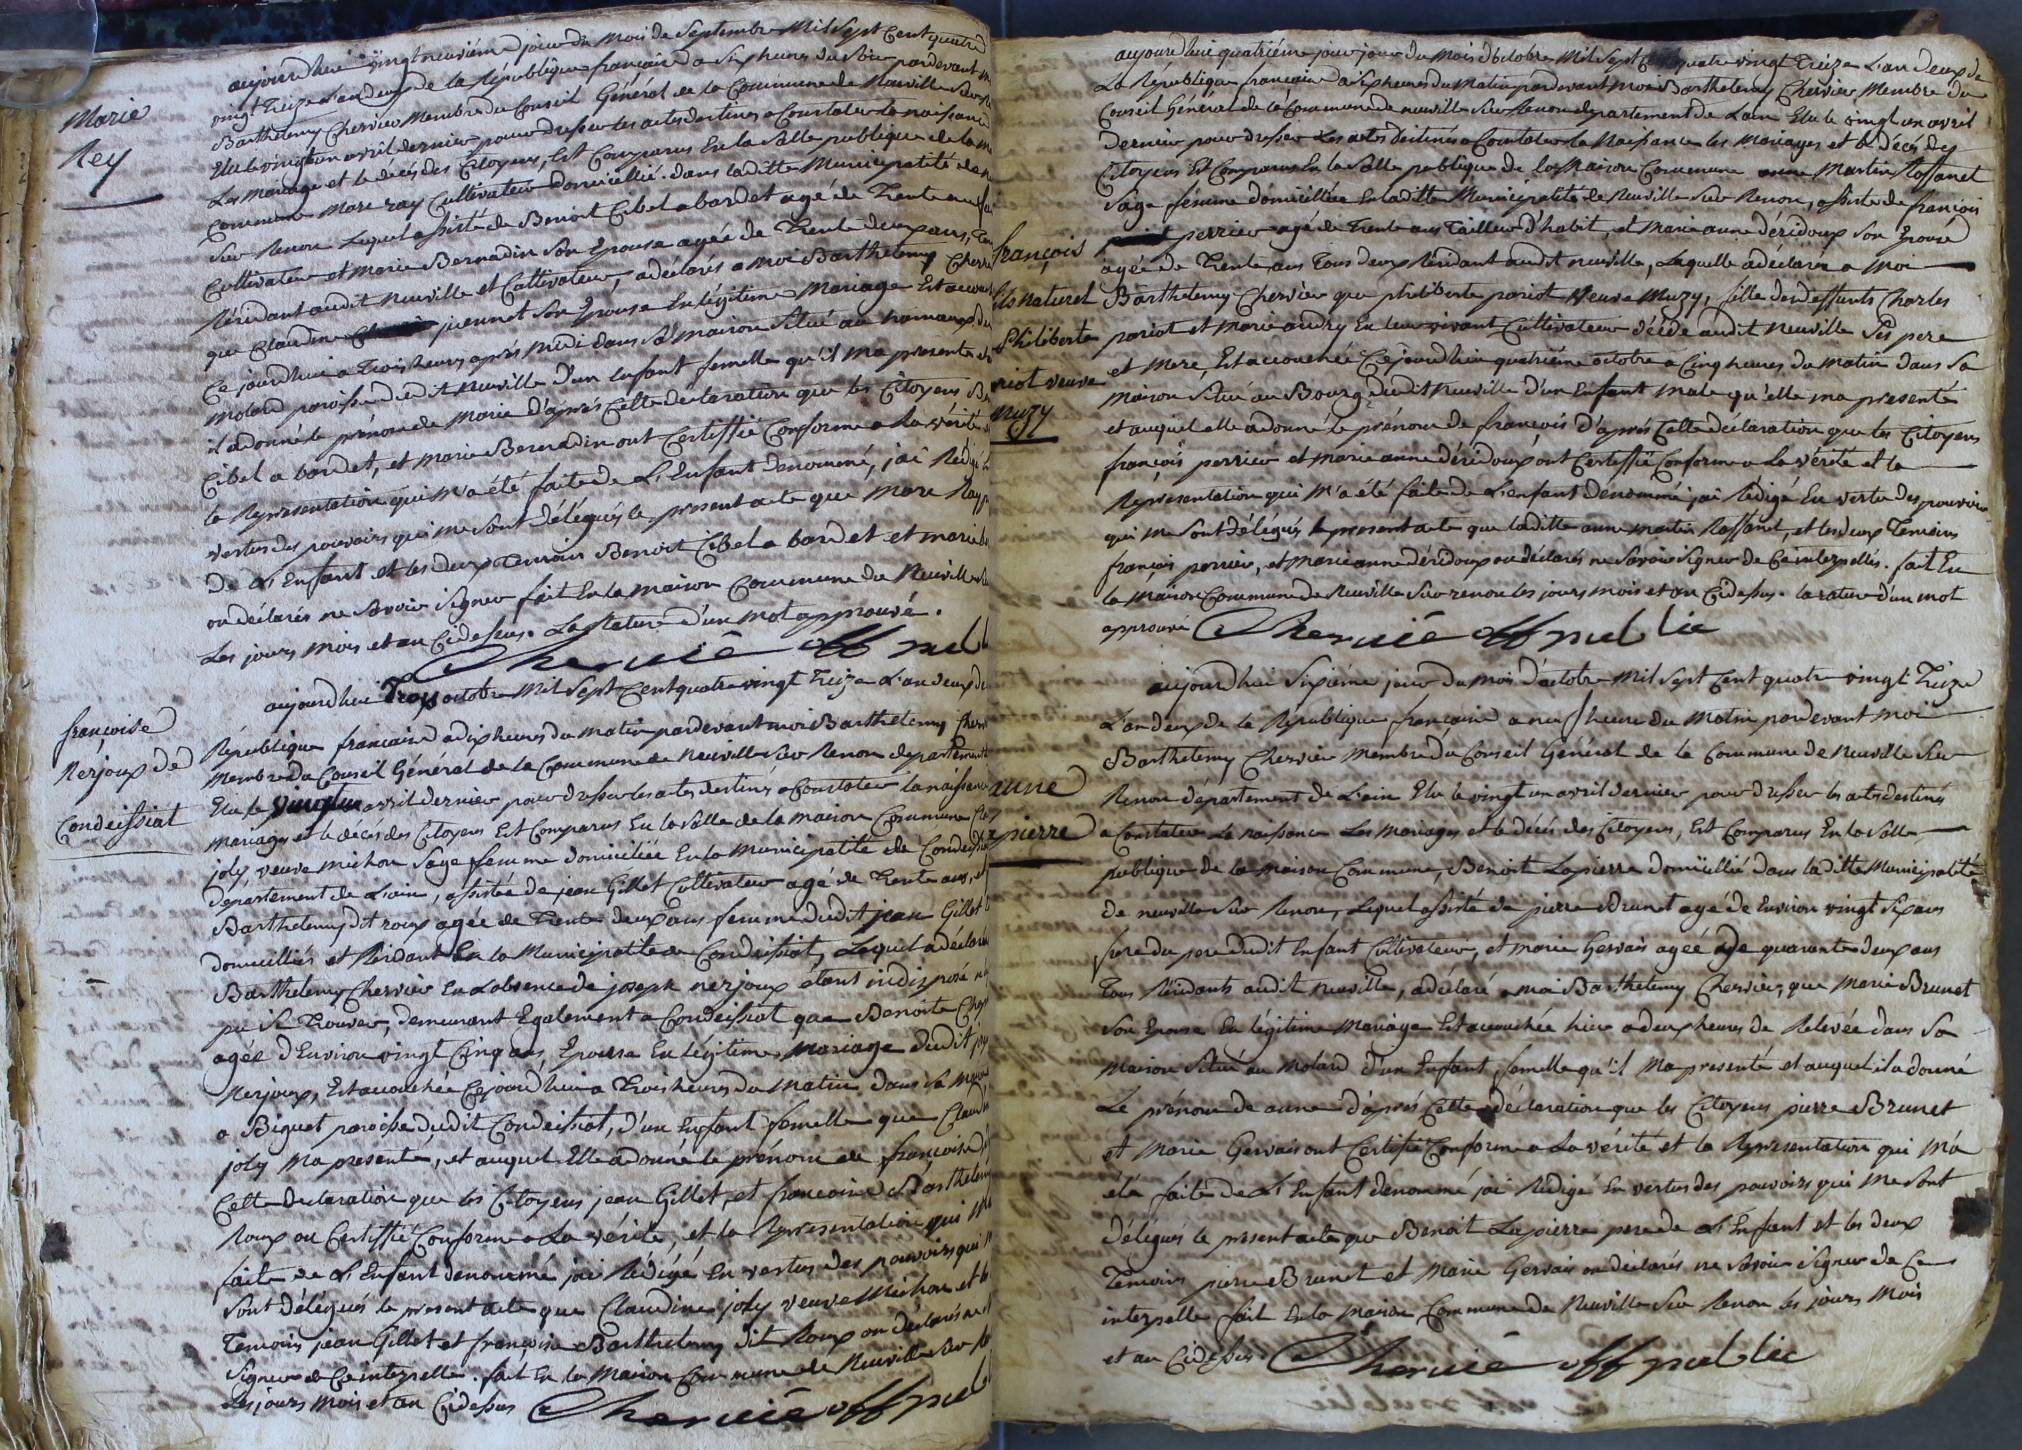 Marie
Rey
aujourdhuy vingt neuviéme jour du Mois de Septembre Mil Sept Cent quatre
vingt Treize L'an deux de la République française a Six heures du Soir pardevant
Barthelemy Chervier Membre du Conseil Général de la Commune de Neuville Sur
Elu le vingt un avril dernier pour dresser les actes destinés a Constater la naissance
Les Mariage et le décès des Citoyens, Est Comparus En la Salle publique de la
Commune Marc ray Cultivateur domicillié dans laditte Municipalité de
Sur Renon Lequel assisté de Benoit Cibel a bardet agé de Trente
Cultivateur et Marie Bernadin Son Epouse agée de Trente deux ans,
Résidant audit Neuville et Cultivateur, a déclarés a Moi Barthelemy
que Claudine piennet Son Epouse En légitime Mariage Est
Ce jourdhui a Trois heures après Midi dans Sa Maison Situé au hameau du
Molard paroisse dudit Neuville d'un Enfant femelle qu'il ma presenté
il a donné le prénom de Marie d'après Cette déclaration que les Citoyens
Cibel a bardet, et Marie Bernadin ont Certiffié Conforme a La vérité
la Representation qui M'a été faite de L'Enfant denommé, jai Redigé
vertus des pouvoirs qui me Sont délégués le present acte que Marc Ray
De L'Enfant et les deux Temoins Benoit Cibel a bardet et marie
on déclarés ne Savoir Signer fait En la maison Commune de Neuville
Les jours Mois et an Cidessus. La Rature d'un Mot approuvé.
Chervié off publ
françoise
Nerjoux de
Condeissiat
aujourdhui Troys octobre Mil Sept Cent quatre vingt Treize L'an deux de
République française a dix heures du matin pardevant moi Barthelemy
Membre du Conseil Général de la Commune de Neuville Sur Renon departement
Elu le vingt un avril dernier pour dresser les actes destinés a Constater la naissance
Mariages et le décès des Citoyens Est Comparus En la Salle de la maison Commune
joly veuve Michon Sage femme domiciliée En la Municipalité de Condeissiat
département de L'ain, assistée de jean Gillet Cultivateur agé de Trente ans,
Barthelemy dit roux agée de Trente deux ans femme dudit jean Gillet
domicilliés et Résidant En la Municipalité de Condeissiat, Lequel a déclaré
Barthelemy Chervier En L'absence de joseph nerjoux étant indisposé
pu Se Trouver, demeurant Egalement a Condeissiat que Benoite
agée d'Environ vingt Cinq ans Epouse En légitime Mariage dudit
Nerjoux, Est accouchée Cejourd'hui a Trois heures du Matin dans Sa
a Biguet paroisse dudit Condeissiat, d'un Enfant femelle que
joly Ma presenté, et auquel Elle a donné le prénom de françoise
Cette declaration que les Citoyens jean Gillet, et françoise Barthelemy
Roux on Certiffié Conforme a La vérité, et la Representation qui
faite de L'Enfant denommé jai Rédigé En vertus des pouvoirs qui
Sont délégués le present acte que Claudine joly veuve Michon et
Temoins jean Gillet et françoise Barthelemy dit Roux on déclarés
Signer de Ce interpellé. fait En la Maison Commune de Neuville Sur
Les jours Mois et an Cidessus Chervié off publ
françois
fils naturel
Philiberte
riot veuve
Muzy
aujourdhui quatriéme jour du Mois d'octobre Mil Sept Cent quatre vingt Treize L'an deux de
La République française a Sept heures du Matin pardevant Moi Barthelemy Chervier Membre du
Conseil Général de la Commune de neuville Sur Renon departement de L'ain Elu le vingt un avril
dernier pour dresser Les actes destinés a Constater la Naissance les Mariages et le décès des
Citoyens Est Comparus En la Salle publique de la Maison Commune anne Martin Rossanet
Sage femme domiciliée En laditte Municipalité de Neuville Sur Renon, assisté de françois
perrier agé de Trente ans Tailleur d'habit, et Marie anne déridoux Son Epouse
agée de Trente ans Tous deux Résidant audit neuville, Laquelle a déclarée a Moi
Barthelemy Chervier que philiberte pariot Veuve Muzy, fille des deffunts Charles
pariot et Marie andry En leur vivant Cultivateur décédé audit Neuville Ses pere
et Mere, Est accouchée Cejourdhui quatriéme octobre a Cinq heures du Matin dans Sa
Maison Situé au Bourg dudit Neuville d'un Enfant Male qu'elle ma presenté
et auquel elle a donné le prénom de françois d'après Cette déclaration que les Citoyens
françois perrier et Marie anne déridoux ont Certiffié Conforme a La vérité et la
Representation qui M'a été faite de L'enfant dénommé jai Rédigé En vertu des pouvoirs
qui me Sont délégués le present acte que laditte anne martin Rossanet, et les deux Temoins
françois perrier, et Marie anne déridoux on déclarés ne Savoir Signer de Ce interpellés. fait En
la Maison Commune de Neuville Sur renon les jours mois et an Cidessus. la rature d'un mot
approuvé Chervié off public
anne
pierre
aujourdhui Sixiéme jour du Mois d'octobre Mil Sept Cent quatre vingt Treize
L'an deux de la Republique française a neuf heure du Matin pardevant moi
Barthelemy Chervier Membre du Conseil Général de la Commune de Neuville Sur
Renon département de L'ain Elu le vingt un avril dernier pour dresser les actes destinés
a Constater la naissance Les Mariages et le décès des Citoyens, Est Comparus En la Salle
publique de la Maison Commune, Benoit Lapierre domicillié dans laditte Municipalité
de neuville Sur Renon, Lequel assisté de pierre Brunet agé de Environ vingt Six ans
frere du pere dudit Enfant Cultivateur, et Marie Gervais agée de quarante deux ans
Tous Résidants audit neuville, a déclaré a moi Barthelemy Chervier, que Marie Brunet
Son Epouse En légitime Mariage Est accouchée hier a deux heures de Relevée dans Sa
Maison Situé au Molard d'un Enfant femelle qu'il Ma presenté et auquel il a donné
Le prénom de anne d'après Cette déclaration que les Citoyens pierre Brunet
et Marie Gervais ont Certifié Conforme a La vérité et la Representation qui M'a
été faite de L'Enfant denommé jai Rédigé En vertus des pouvoirs qui Me Sont
délégués le present acte que Benoit Lapierre pere de L'Enfant et les deux
Temoins pierre Brunet et Marie Gervais on déclarés ne Savoir Signer de Ce
interpellé fait En la Maison Commune de Neuville Sur Renon les jours Mois
et an Cidessus. Chervié off public